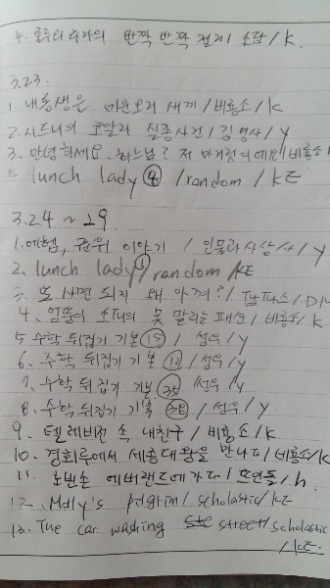 4. 루와 반짝 반짝 / 소담 / K.
3.23.
1. 내 동생은 미운오리 새끼 / 비룡소 / K
2. 시드니의 코알라 실종사건 / 김영사 / Y
3. 안녕하세요. 하느님? 저 마거릿이에요 / 비룡소 /
lunch lady ④ / random / KE
3.24 ~ 29
1. 예험, 이야기 / 인물과사상사 / Y
2. lunch lady / random / KE
3. 또 사면 되지 왜 아껴? /
4. 소녀의 못 말리는 패션 / 비룡소 / K
5. 수학 뒤집기 기본 ⑮ / 성우 / Y
6. 수학 뒤집기 기본 ⑫ / 성우 / Y
7. 수학 뒤집기 기본 / 성우 / Y
8. 수학 뒤집기 기본 / 성우 / Y
9. 텔레비전 속 내친구 / 비룡소 / K
10. 경회루에서 세종대왕을 만나다 / 비룡소 / K
11. 노빈손 에버랜드에 가다 / 뜨인돌 / h
12. Molly's pilgrim / scholastic / KE
13. The car washing street / scholastic
/ KE.